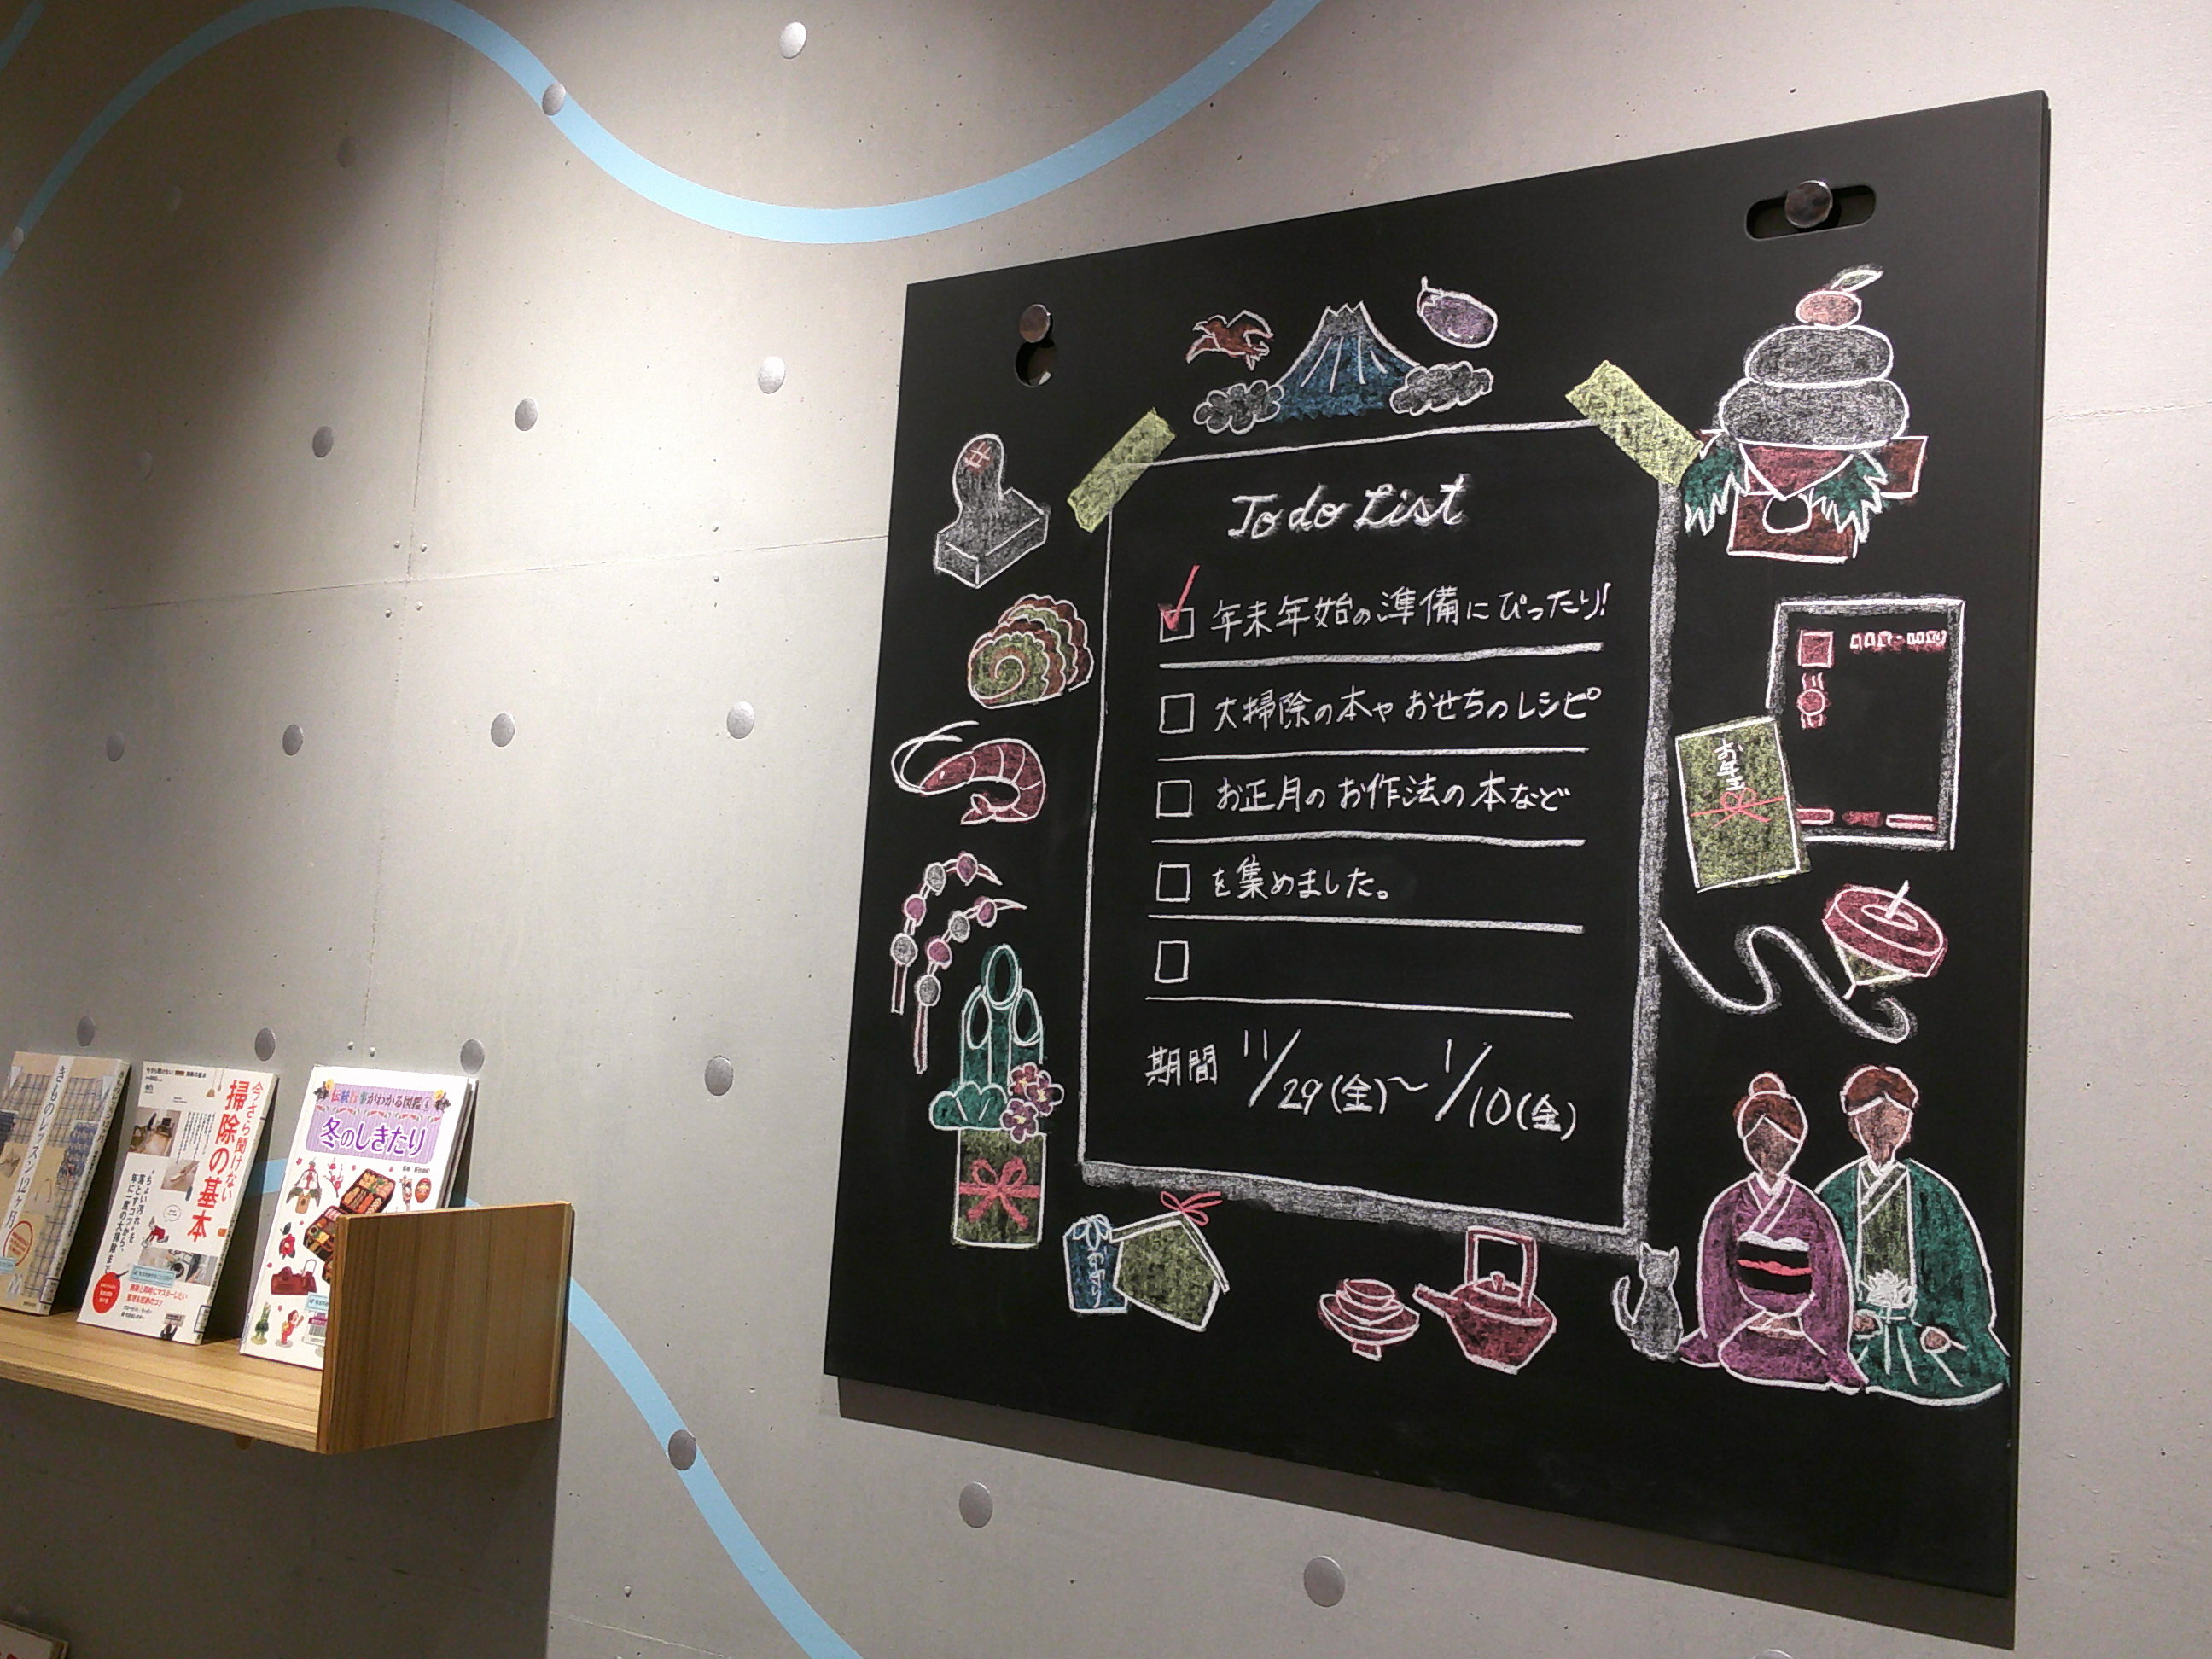 To do List
年末年始の準備にぴったり!
大掃除の本やおせちのレシピ
お正月のお作法の本など
を集めました。
期間 11/29(金)～1/10(金)
お年玉
きものレッスン12ヶ月
今さら聞けない
掃除の基本
"ちょい汚れ"を
落とすコツから、
年に一度の大掃除まで
伝統行事がわかる図鑑4
冬のしきたり